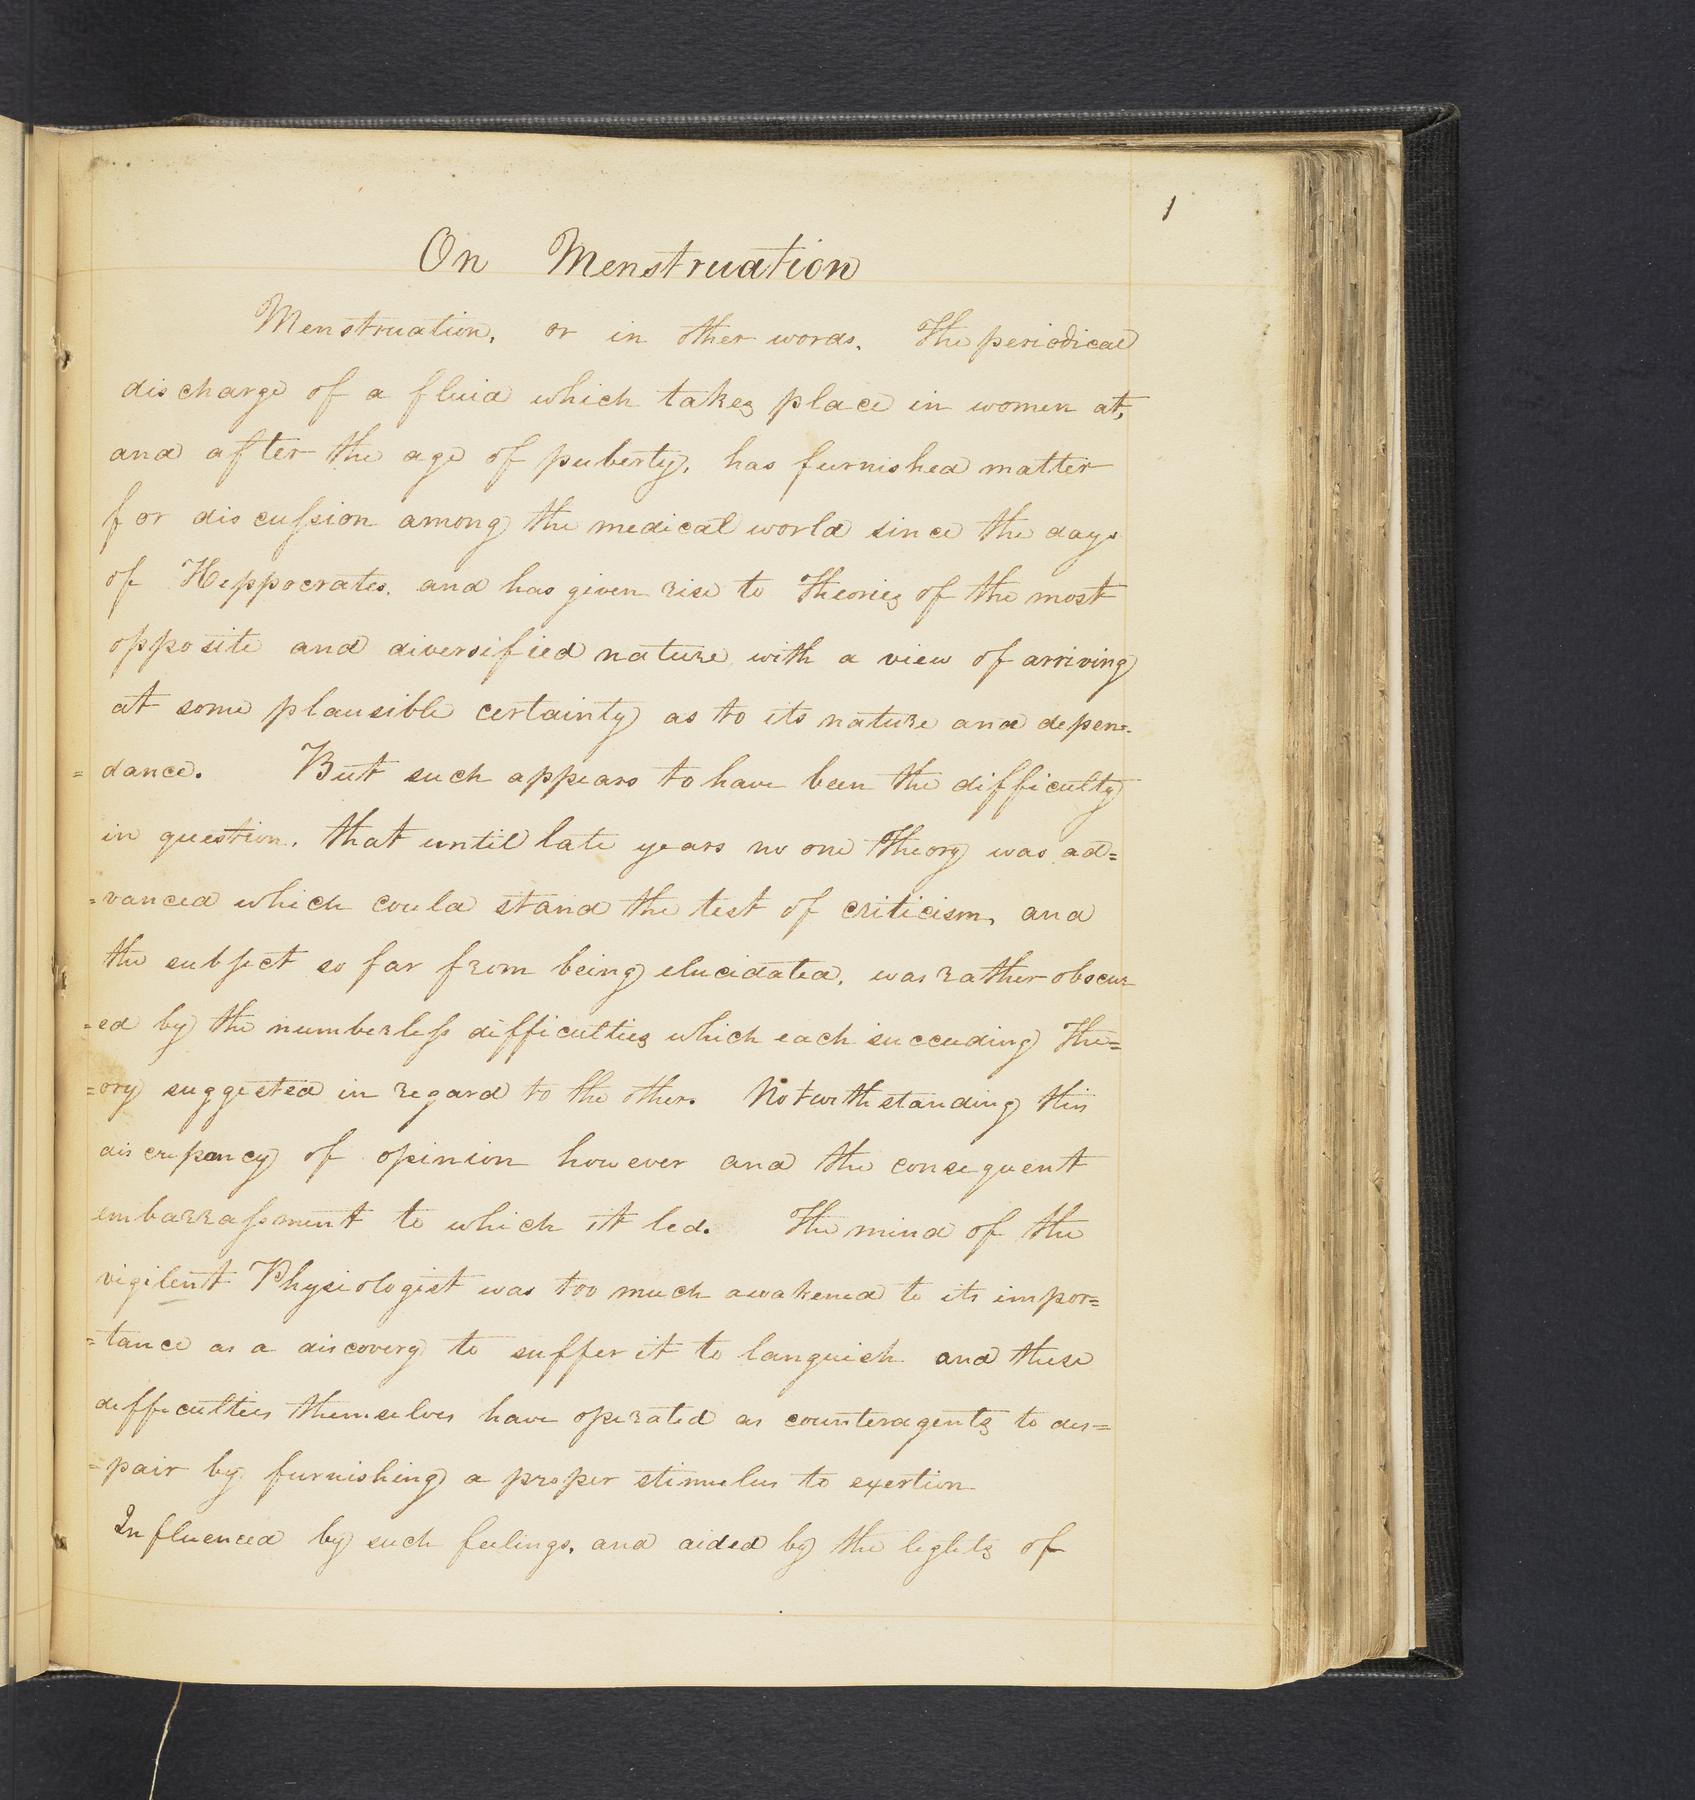 1
On Menstruation
Menstruation, or in other words, The periodical
discharge of a fluid which takes place in women at,
and after the age of puberty, has furnished matter
for discussion among the medical world since the days
of Heppocrates, and has given rise to Theories of the most
opposite and diversified nature with a view of arriving
at some plausible certainty as to its nature and depen=
=dance. But such appears to have been the difficulty
in question, that until late years no one Theory was ad=
=vanced which could stand the test of criticism, and
the subject so far from being elucidated, was rather obscur
=ed by the numberless difficulties which each succeeding The=
=ory suggested in regard to the other. Notwithstanding this
discrepancy of opinion however and the consequent
embarrassment to which it led. The mind of the
vigilent Physiologist was too much awakened to its impor=
=tance as a discovery to suffer it to languish and these
difficulties themselves have operated as counteragents to des=
=pair by furnishing a proper stimulus to exertion
Influenced by such feelings, and aided by the lights of